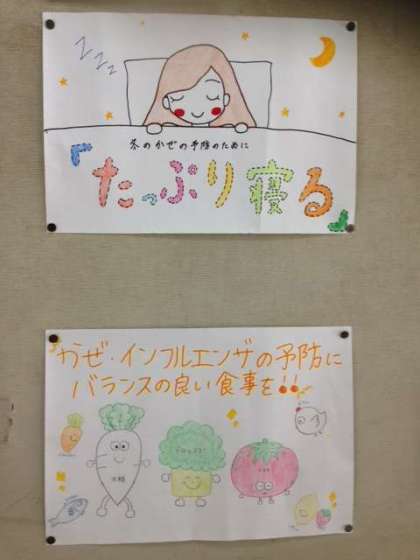 zzz
冬のかぜの予防のために
『たっぷり寝る』
かぜ・インフルエンザの予防に
バランスの良い食事を!!